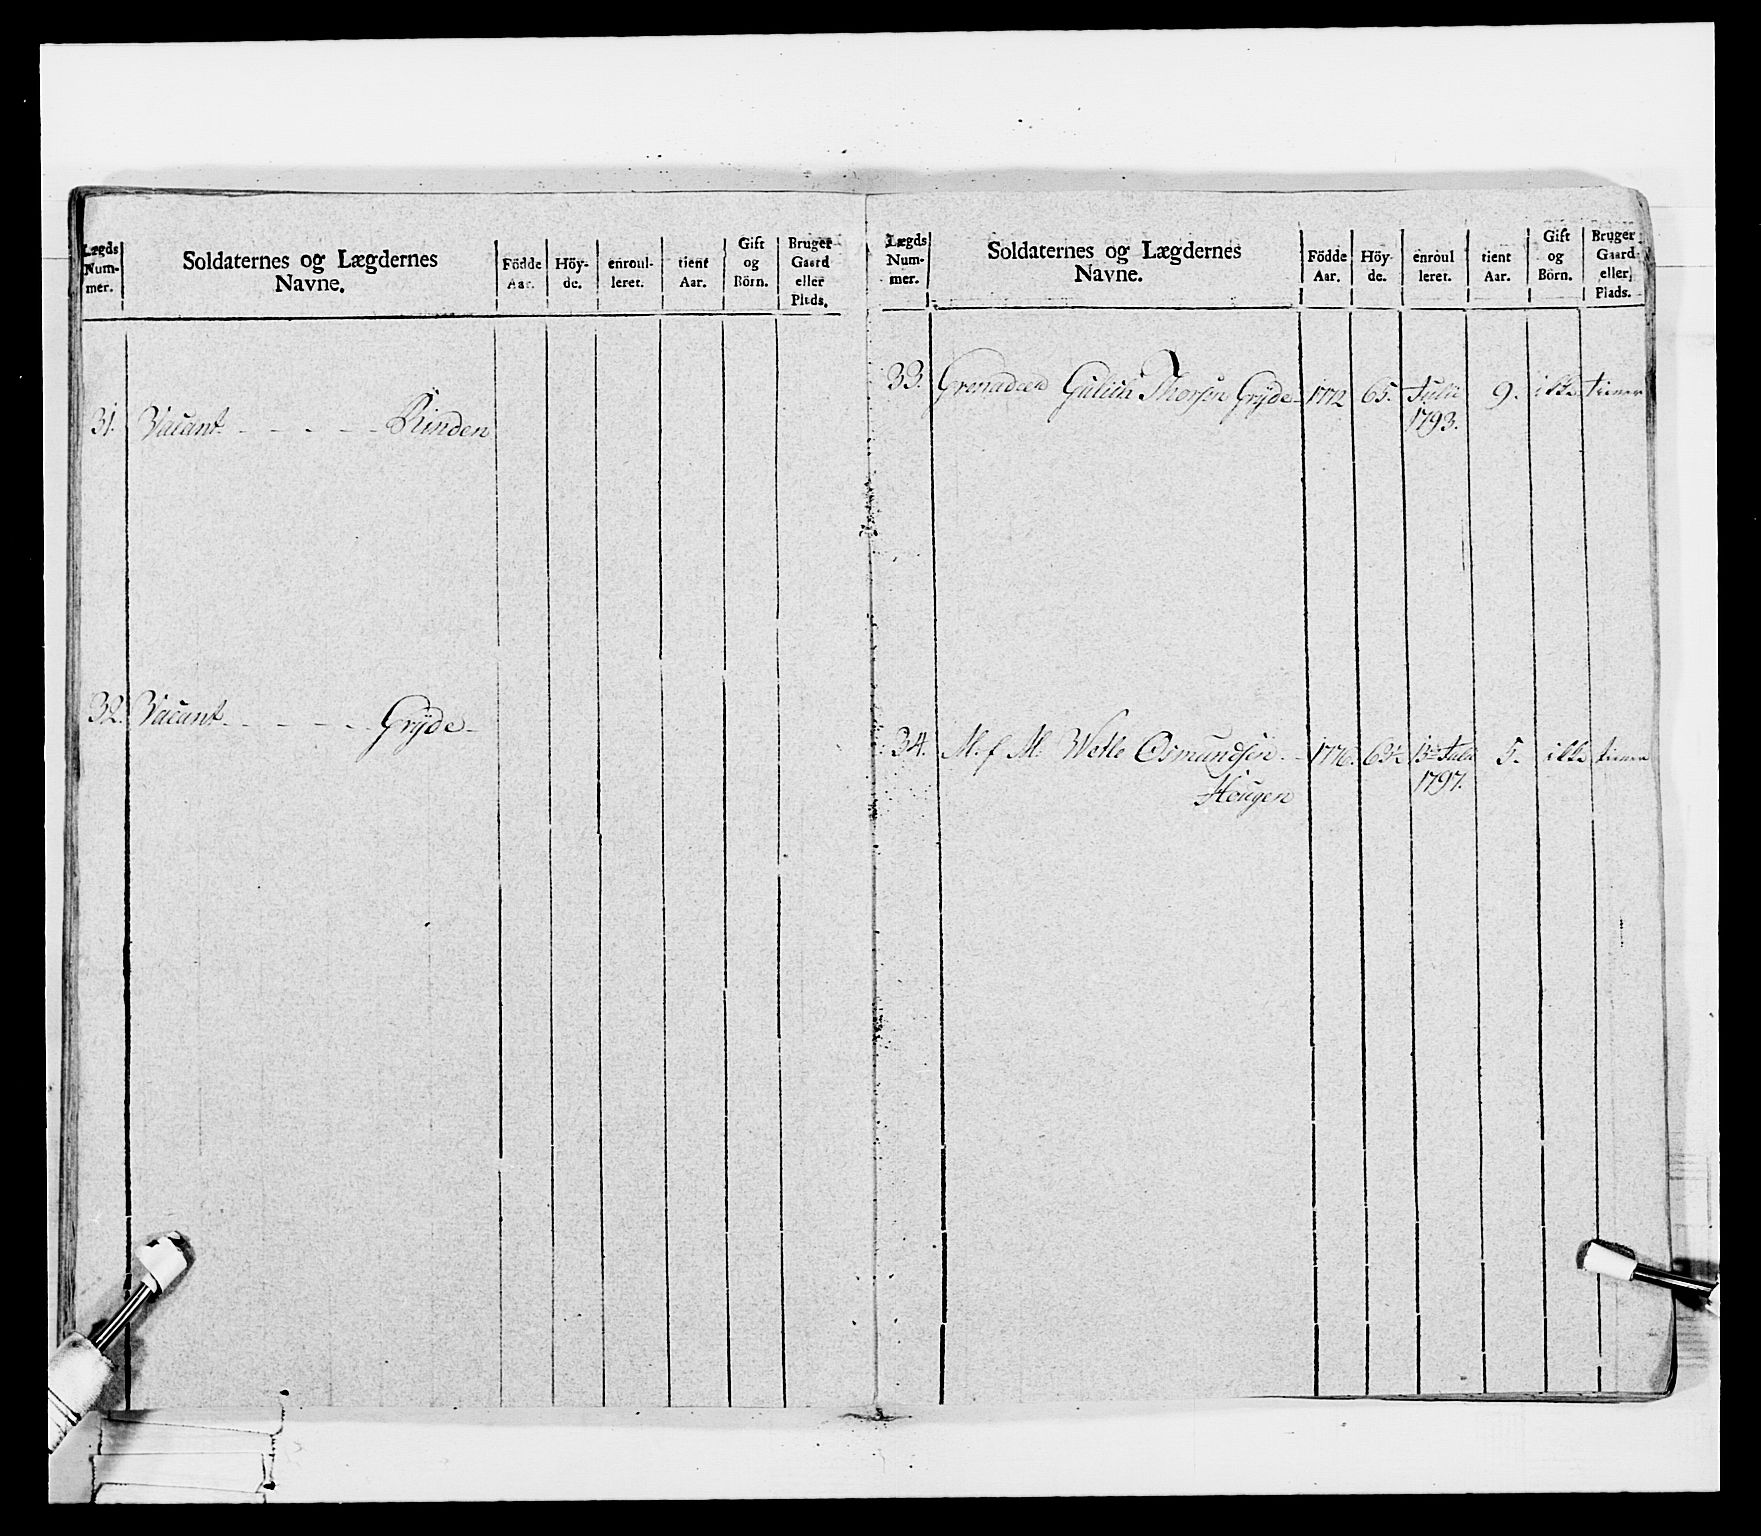 Lægds Num- mer. Soldaternes og Lægdernes Navne. Födde Aar. Höy- de. enroul- leret. tient Aar. Gift og Börn. Bruger Gaard eller Plads.
31. Vacant - - - - - Rinden
32. Vacant - - - - - Grÿde
Lægds Num- mer. Soldaternes og Lægdernes Navne. Födde Aar. Höy- de. enroul leret. tient Aar. Gift og Börn. Bruger Gaard eller Plads.
33. Grenadeer Thorsen Grÿde 1772 65. Julii 9. ikke tiener
1793.
34. M. f M. Wetle Osmundsen 1776. Julii 5. ikke tiener
Hougen 1797.